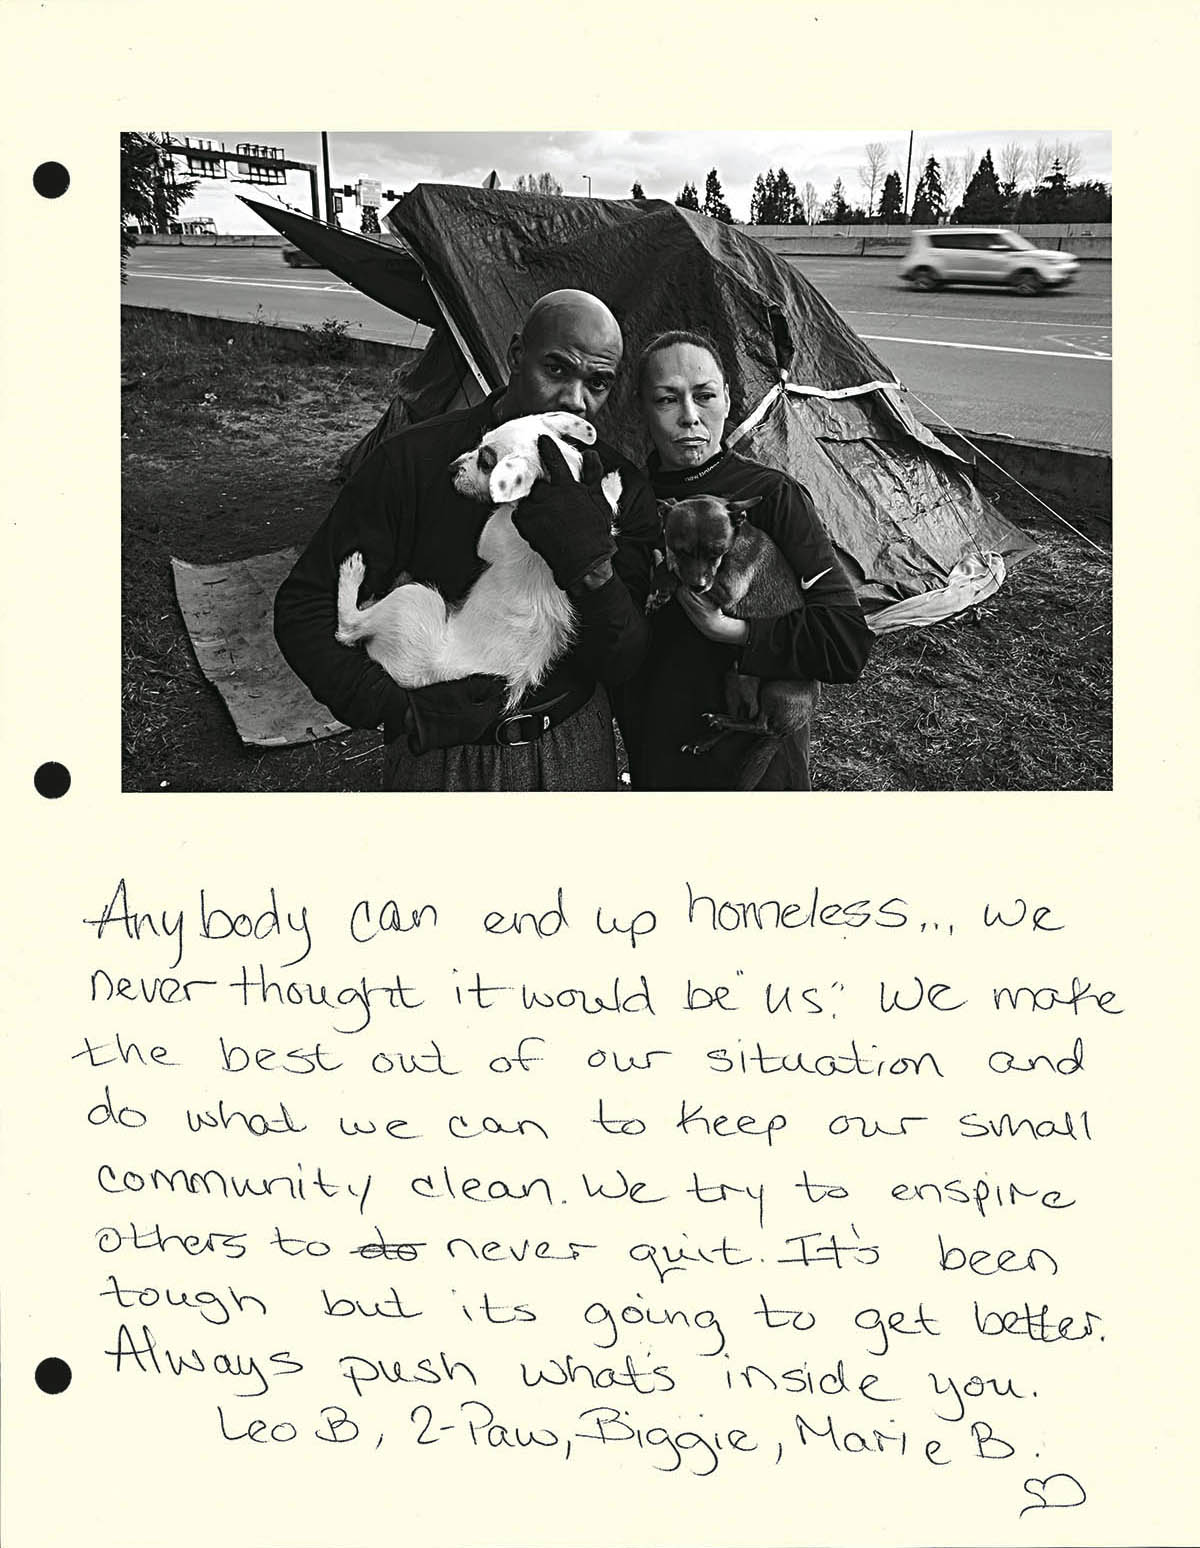 new balance
Anybody can end up homeless... we
never thought it would be "us." We make
the best out of our situation and
do what we can to keep our small
community clean. We try to enspire
others to do never quit. It's been
tough but its going to get better.
Always push what's inside you.
Leo B, 2-Paw, Biggie, Marie B.